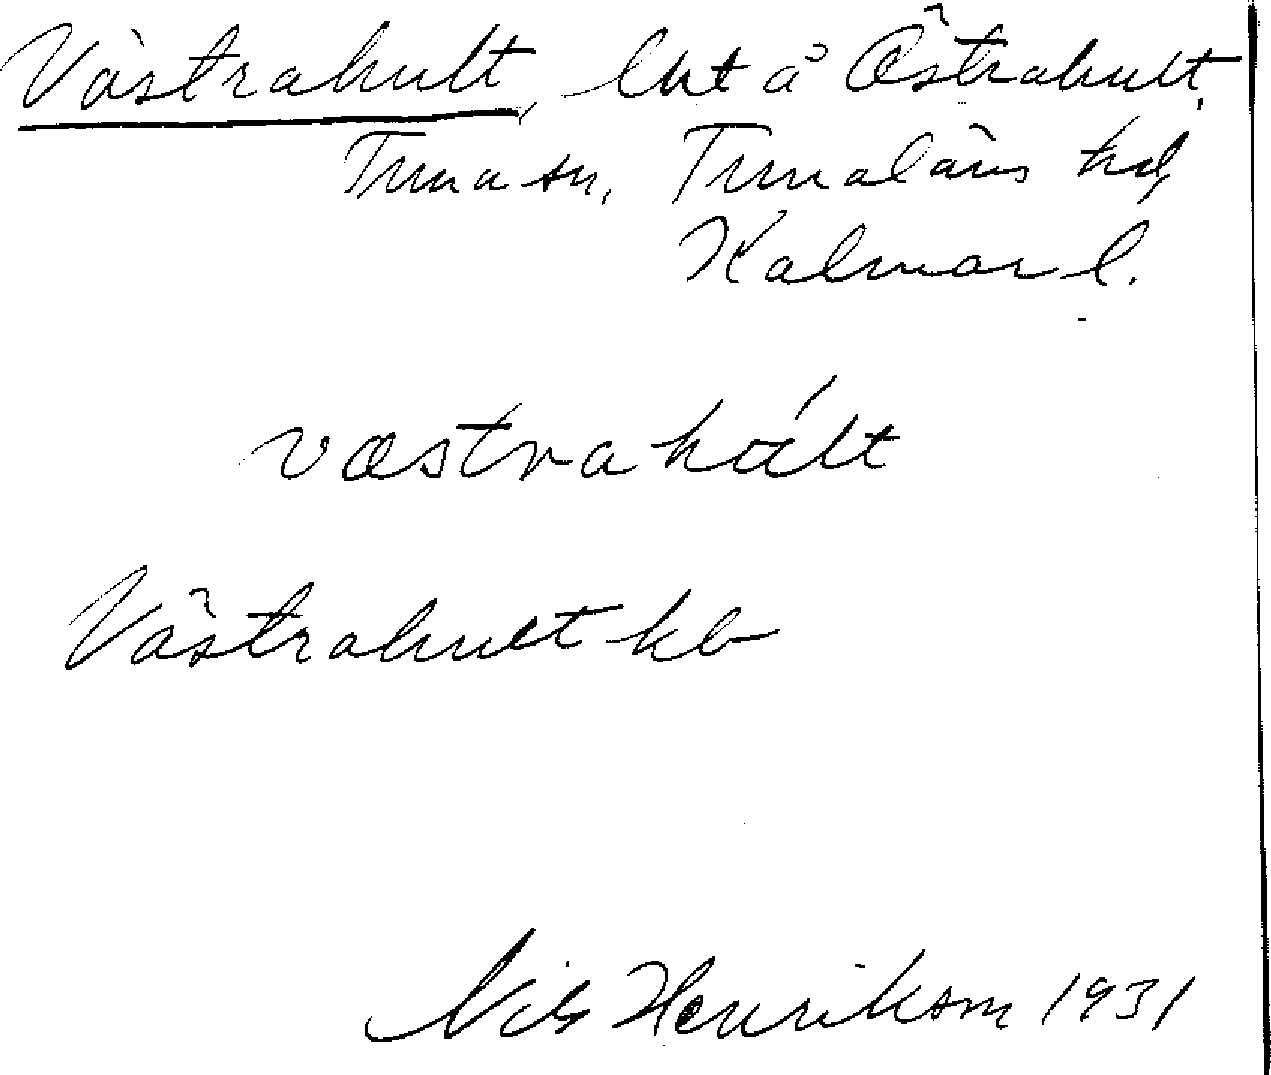 Västrahult, lht å Östrahult,
Tuna sn, Tunaläns hd,
Kalmar l.
væstrahúlt
Västrahult kb
Nils Henrikson 1931